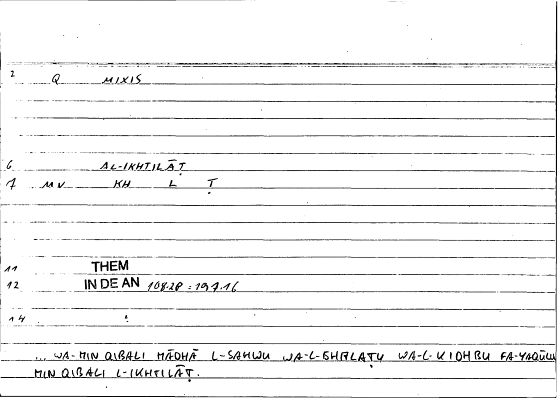 2 Q MIXIS
6 AL-IKHTILĀṬ
7 MV KH L Ṭ
11 THEM
12 IN DE AN 108.28 : 197.16
14 :
... WA-MIN QIBALI MĀDHĀ L-SAHWU WA-L-GHALAṬU WA-L-KIDHBU FA-YAQŪLU
MIN QIBALI L-IKHTILĀṬ.